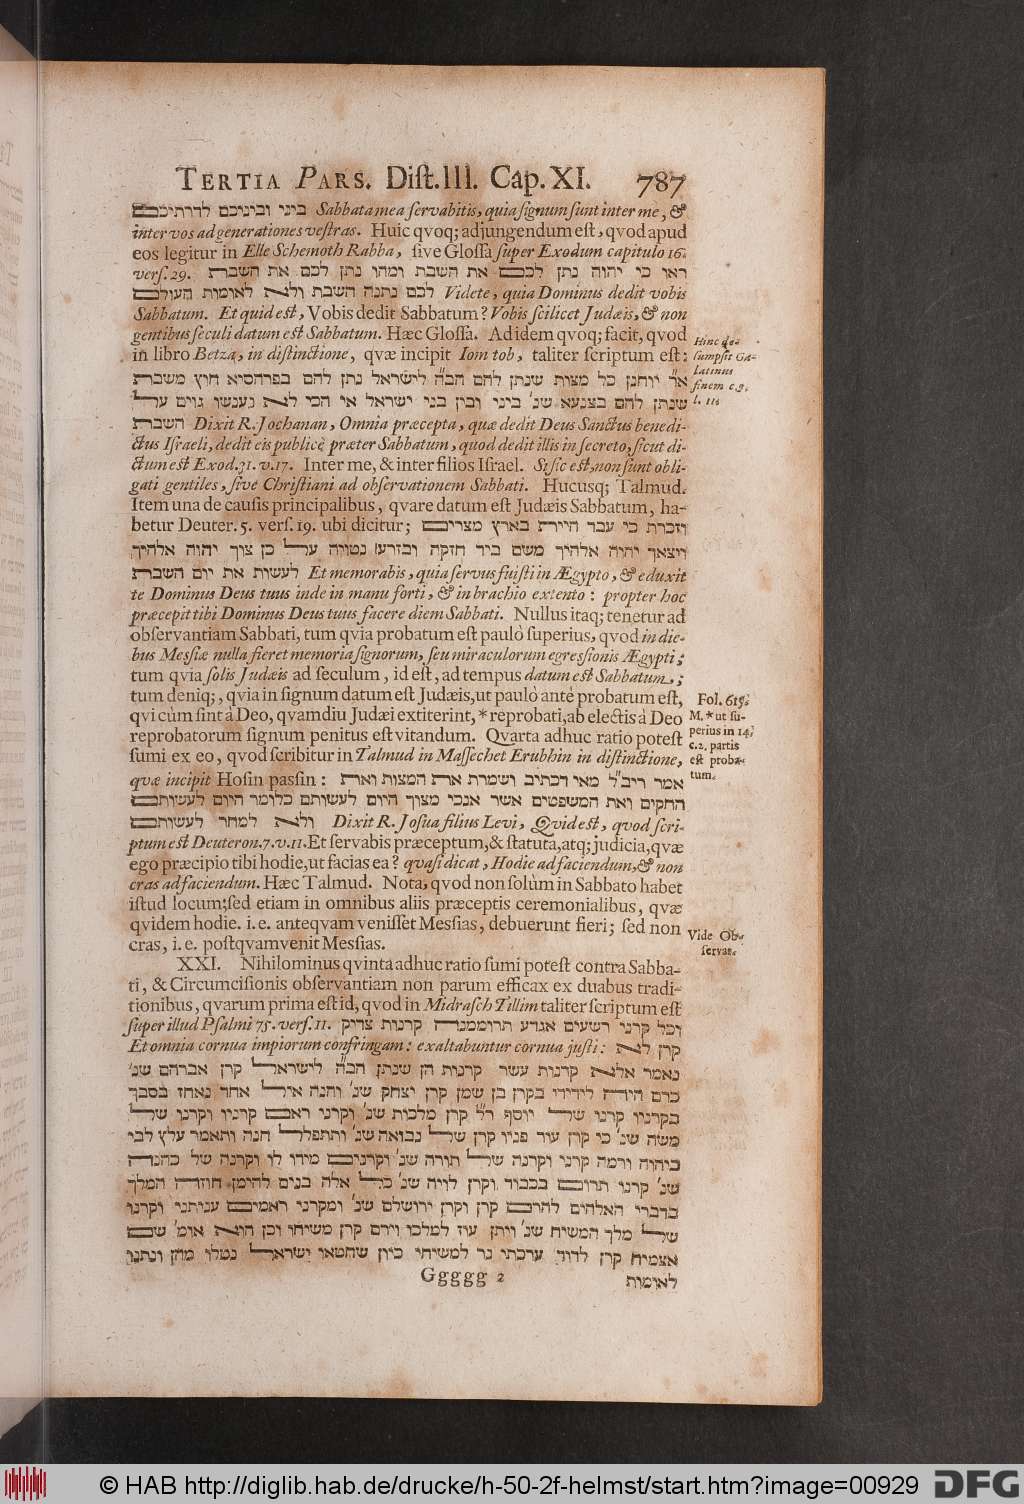 TERTIA PARS. Dist. III. Cap. XI. 787
ביני וביניכם לדרתיכם Sabbata mea servabitis, quia signum sunt inter me, &
inter vos ad generationes vestras. Huic qvoq; adjungendum est, qvod apud
eos legitur in Elle Schemoth Rabba, sive Glossa super Exodum capitulo 16.
vers. 29. ראו כי יהוה נתן לכם את השבת ומהו נתן לכם את השבת
לכם נתנה השבת ולא לאומות העולם Videte, quia Dominus dedit vobis
Sabbatum. Et quid est, Vobis dedit Sabbatum? Vobis scilicet Judæis, & non
gentibus seculi datum est Sabbatum. Hæc Glossa. Ad idem qvoq; facit, qvod
in libro Betza, in distinctione, qvæ incipit Iom tob, taliter scriptum est:
אר יוחנן כל מצות שנתן להם הב״ה לישראל נתן להם בפרהסיא חוץ משבת
שנתן להם בצנעא שנ׳ ביני ובין בני ישראל אי הכי לא נענשו גוים על
השבת Dixit R. Jochanan, Omnia præcepta, quæ dedit Deus Sanctus benedi-
ctus Israeli, dedit eis publicè præter Sabbatum, quod dedit illis in secreto, sicut di-
ctum est Exod. 31. v. 17. Inter me, & inter filios Israel. Si sic est, non sunt obli-
gati gentiles, sive Christiani ad observationem Sabbati. Hucusq; Talmud.
Item una de causis principalibus, qvare datum est Judæis Sabbatum, ha-
betur Deuter. 5. vers. 19. ubi dicitur; וזכרת כי עבד היית בארץ מצרים
ויצאך יהוה אלהיך משם ביד חזקה ובזרע נטויה על כן צוך יהוה אלהיך
לעשות את יום השבת Et memorabis, quia servus fuisti in Ægypto, & eduxit
te Dominus Deus tuus inde in manu forti, & in brachio extento: propter hoc
præcepit tibi Dominus Deus tuus facere diem Sabbati. Nullus itaq; tenetur ad
observantiam Sabbati, tum qvia probatum est paulò superius, qvod in die-
bus Messiæ nulla fieret memoria signorum, seu miraculorum egressionis Ægypti;
tum qvia solis Judæis ad seculum, id est, ad tempus datum est Sabbatum,;
tum deniq;, qvia in signum datum est Judæis, ut paulò antè probatum est,
qvi cùm sint à Deo, qvamdiu Judæi extiterint, * reprobati, ab electis à Deo
reprobatorum signum penitus est vitandum. Qvarta adhuc ratio potest
sumi ex eo, qvod scribitur in Talmud in Massechet Erubhin in distinctione,
quæ incipit Hosin passin: אמר ריב״ל מאי דכתיב ושמרת את המצות ואת
החקים ואת המשפטים אשר אנכי מצוך היום לעשותם כלומר היום לעשותם
ולא למחר לעשותם Dixit R. Josua filius Levi, Quid est, quod scri-
ptum est Deuteron. 7. v. 11. Et servabis præceptum, & statuta, atq; judicia, qvæ
ego præcipio tibi hodie, ut facias ea? quasi dicat, Hodie ad faciendum, & non
cras ad faciendum. Hæc Talmud. Nota, qvod non solùm in Sabbato habet
istud locum; sed etiam in omnibus aliis præceptis ceremonialibus, qvæ
qvidem hodie. i. e. anteqvam venisset Messias, debuerunt fieri; sed non
cras, i. e. postqvam venit Messias.
XXI. Nihilominus qvinta adhuc ratio sumi potest contra Sabba-
ti, & Circumcisionis observantiam non parum efficax ex duabus tradi-
tionibus, qvarum prima est id, qvod in Midrasch Tillim taliter scriptum est
super illud Psalmi 75. vers. 11. וכל קרני רשעים אגדע תרוממנה קרנות צדיק
Et omnia cornua impiorum confringam: exaltabuntur cornua justi: קרן לא
נאמר אלא קרנות עשר קרנות הן שנתן הב״ה לישראל קרן אברהם שנ׳
כרם היה לידידי בקרן בן שמן קרן יצחק שנ׳ והנה איל אחר נאחז בסבך
בקרניו קרנו של יוסף ר״ל קרן מלכות שנ׳ וקרני ראם קרניו וקרנו של
משה שנ׳ כי קרן עור פניו קרן של נבואה שנ׳ ותתפלל חנה ותאמר עלץ לבי
ביהוה ורמה קרני וקרנה של תורה שנ׳ וקרנים מידו לו וקרנה של כהנה
שנ׳ קרנו תרום בכבוד וקרן לויה שנ׳ כל אלה בנים להימן חוזה המלך
בדברי האלהים להרם קרן וקרן ירושלם שנ׳ ומקרני ראמים עניתני וקרנו
של מלך המשיח שנ׳ ויתן עוז למלכו וירם קרן משיחו וכן הוא אומ׳ שם
אצמיח קרן לדוד ערכתי נר למשיחי כיון שחטאו ישראל נטלו מהן ונתנו
Ggggg 2 לאומות
Hinc de-
sumpsit Ga-
latinus
finem c. 9.
l. 11.
Fol. 615.
M. * ut su-
perius in 14.
c. 2. partis
est proba-
tum.
Vide Ob-
servat.
© HAB http://diglib.hab.de/drucke/h-50-2f-helmst/start.htm?image=00929
DFG